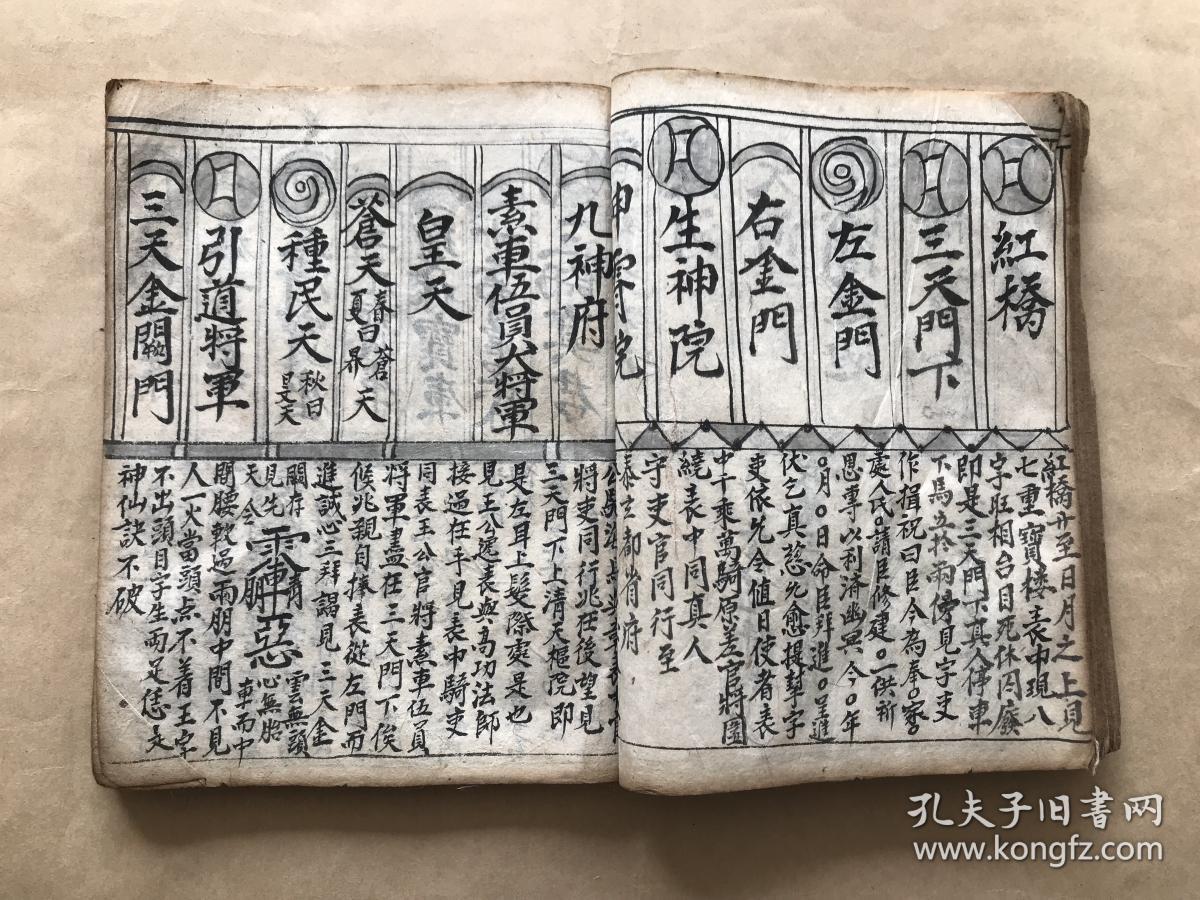 紅橋
三天門下
左金門
右金門
生神院
院
九神府
素車伍員大將軍
皇天
蒼天 春曰蒼天 夏曰昇天
種民天 秋曰旻天
引道將軍
三天金闕門
紅橋廿至日月之上見
七重寶楼表中現八
字旺相台目死休囚廢
即是三天門下真人停車
下馬立於兩傍見字吏
作揖祝曰臣今為奉○家○
處人氏○請臣修建○一供祈
恩專以利濟幽冥今○年
○月○日命臣拜進○呈進
伏乞真慈允愈提挈字
吏依允令值日使者表
中千乘萬騎原差官將圍
繞表中同真人
守吏官同行至
泰玄都省府
將吏同行兆在後望見
三天門下上清天樞院即
是左耳上髮際處是也
見王公遞表與高功法師
接過在手見表中騎吏
同表王公官將素車伍員
將軍盡在三天門下俟
候兆親自捧表從左門而
進誠心三拜謁見三天金
闕存
見先
天令
雲無頭
心無胎
車而中
間腰數過兩朋中間不見
人一火當頭点不着王字
不出頭目字生而足恁文
神仙訣不破
孔夫子旧書网
www.kongfz.com